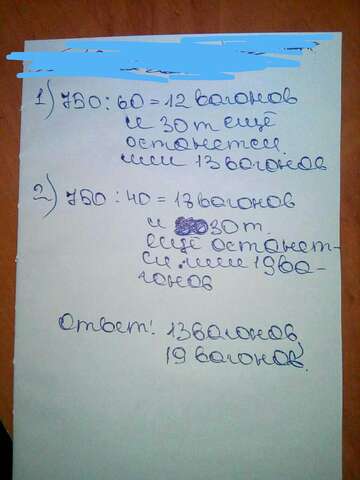 1) 750 : 60 = 12 вагонов
и 30 т ещё
останется
или 13 вагонов
2) 750 : 40 = 18 вагонов
и 30 т.
ещё останет-
ся или 19 ва-
гонов
Ответ: 13 вагонов,
19 вагонов.